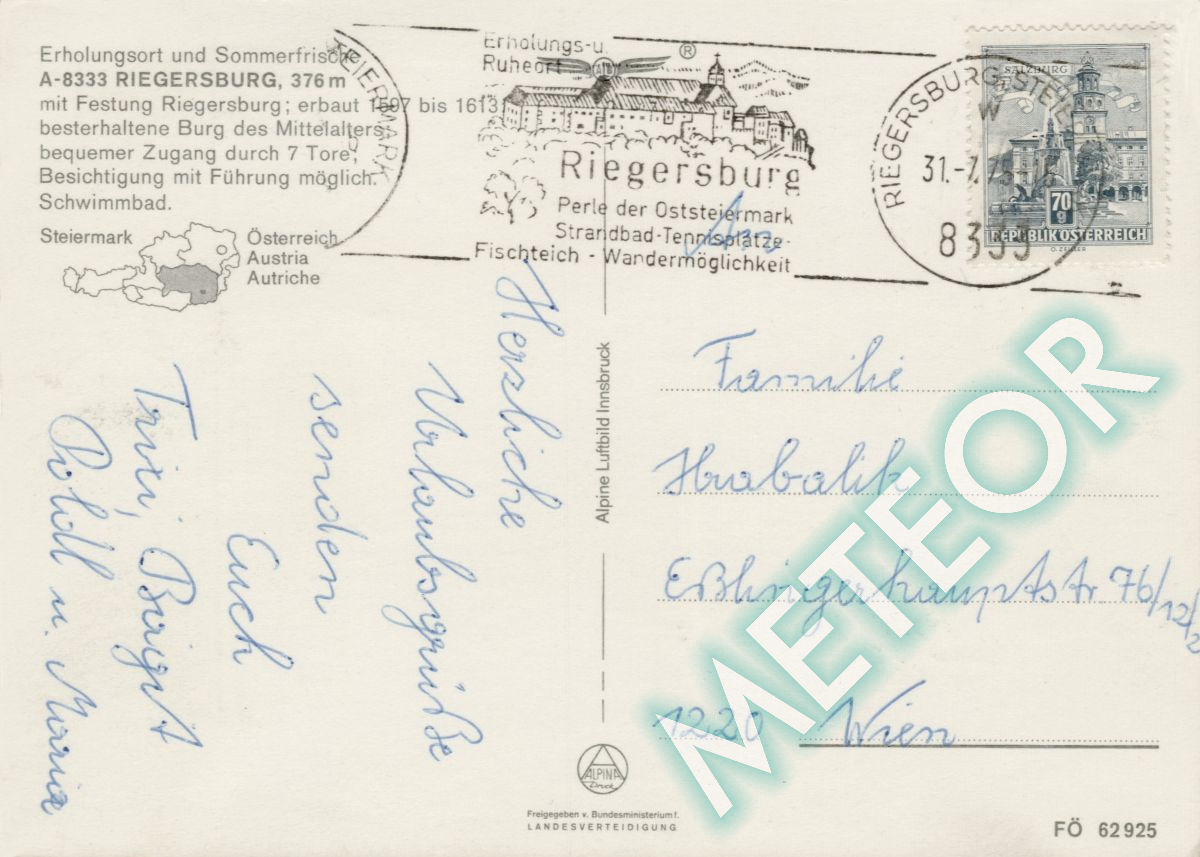 Erholungsort und Sommerfrische
A-8333 RIEGERSBURG, 376 m
mit Festung Riegersburg; erbaut 1597 bis 1613;
besterhaltene Burg des Mittelalters,
bequemer Zugang durch 7 Tore,
Besichtigung mit Führung möglich.
Schwimmbad.
Steiermark
Österreich
Austria
Autriche
STEIERMARK
Erholungs-u.
Ruheort
®
Riegersburg
Perle der Oststeiermark
Strandbad-Tennisplätze-
Fischteich - Wandermöglichkeit
RIEGERSBURG, STEIERM
31.-7.
8333
SALZBURG
70
g
REPUBLIK ÖSTERREICH
O. ZEILLER
Herzliche
Urlaubsgrüße
senden
Euch
Trixi, Birgit
Poldl u. Maria
Alpine Luftbild Innsbruck
An
Familie
Hrabalik
Eßlingerhauptstr. 76/12/2
1220 Wien
METEOR
ALPINA
Druck
Freigegeben v. Bundesministerium f.
LANDESVERTEIDIGUNG
FÖ 62 925